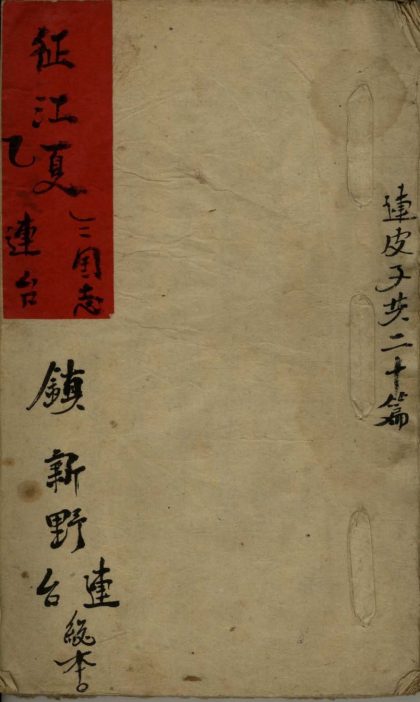 連皮子共二十篇
征江夏
三国志
乙連台
鎮新野
連台
總本